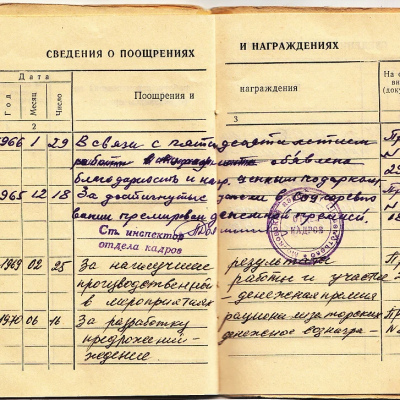 СВЕДЕНИЯ О ПООЩРЕНИЯХ И НАГРАЖДЕНИЯХ
Дата
Год Месяц Число
Поощрения и награждения
На о
вн
(доку
2 3
1966 1 29 В связи с пятидесятилетием Пр
работы в объявлена
благодарность и нагр. ценным подарком 29
1965 12 18 За достигнутые успехи в Соцсоревно Пр
вании премирован денежной премией. 18
Ст. инспектор
отдела кадров
ОТДЕЛ
КАДРОВ
1969 02 25 За наилучшие результаты Пр
производственной работы и участие
в мероприятиях денежная премия
1970 06 16 За разработку рационализаторских Пр
предложений - денежное вознагра- N
ждение